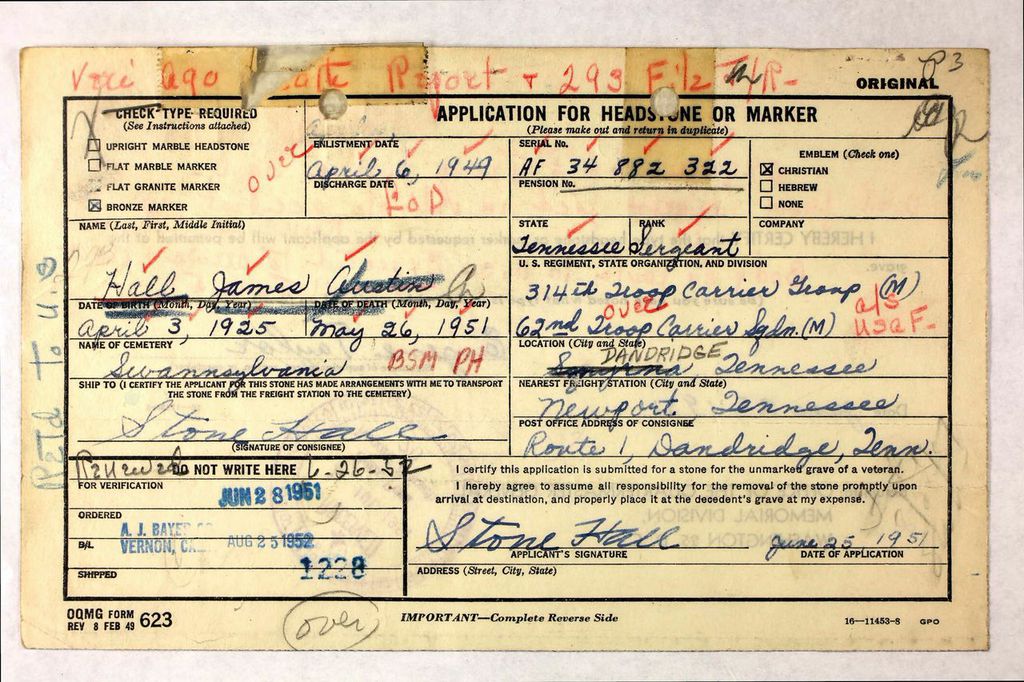 Report + 293 File
ORIGINAL
P3
CHECK TYPE REQUIRED
(See Instructions attached)
UPRIGHT MARBLE HEADSTONE
FLAT MARBLE MARKER
FLAT GRANITE MARKER
BRONZE MARKER
over
ENLISTMENT DATE
April 6, 1949
DISCHARGE DATE
EOD
APPLICATION FOR HEADSTONE OR MARKER
(Please make out and return in duplicate)
SERIAL No.
AF 34 882 322
PENSION No.
EMBLEM (Check one)
CHRISTIAN
HEBREW
NONE
NAME (Last, First, Middle Initial)
Hall James Austin
STATE
Tennessee
RANK
Sergeant
COMPANY
U. S. REGIMENT, STATE ORGANIZATION, AND DIVISION
314th Troop Carrier Group (M)
over
62nd Troop Carrier Sqdn. (M)
a/s
USAF
DATE OF BIRTH (Month, Day, Year)
April 3, 1925
DATE OF DEATH (Month, Day, Year)
May 26, 1951
NAME OF CEMETERY
Swannsylvania
BSM PH
LOCATION (City and State)
DANDRIDGE
Tennessee
SHIP TO (I CERTIFY THE APPLICANT FOR THIS STONE HAS MADE ARRANGEMENTS WITH ME TO TRANSPORT
THE STONE FROM THE FREIGHT STATION TO THE CEMETERY)
Stone Hall
(SIGNATURE OF CONSIGNEE)
NEAREST FREIGHT STATION (City and State)
Newport. Tennessee
POST OFFICE ADDRESS OF CONSIGNEE
Route 1, Dandridge, Tenn.
DO NOT WRITE HERE
6-26-52
FOR VERIFICATION
JUN 28 1951
ORDERED
A. J. BAYER CO
VERNON, CAL
AUG 25 1952
B/L
1228
SHIPPED
I certify this application is submitted for a stone for the unmarked grave of a veteran.
I hereby agree to assume all responsibility for the removal of the stone promptly upon
arrival at destination, and properly place it at the decedent's grave at my expense.
Stone Hall
June 25 1951
APPLICANT'S SIGNATURE
DATE OF APPLICATION
ADDRESS (Street, City, State)
OQMG FORM
REV 8 FEB 49 623
over
IMPORTANT—Complete Reverse Side
16—11453-8 GPO